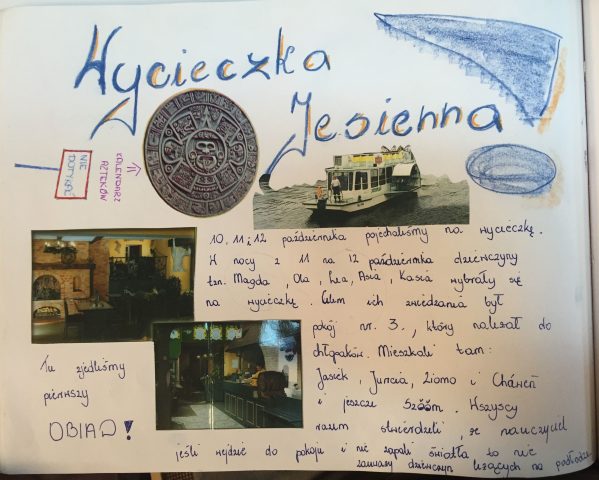 Wycieczka
Jesienna
NIE
DOTYKAĆ
KALENDARZ
AZTEKÓW
10, 11 i 12 października pojechaliśmy na wycieczkę.
W nocy z 11 na 12 października dziewczyny
tzn. Magda, Ola, Lea, Asia, Kasia wybrały się
na wycieczkę. Celem ich zwiedzania był
pokój nr. 3., który należał do
chłopaków. Mieszkali tam:
Jasiek, Juncia, Ziomo i Cháněń
i jeszcze Szööm. Wszyscy
razem stwierdzili, że nauczyciel
jeśli wejdzie do pokoju i nie zapali światła to nie
zauważy dziewczyn leżących na podłodze
Tu zjedliśmy
pierwszy
OBIAD!